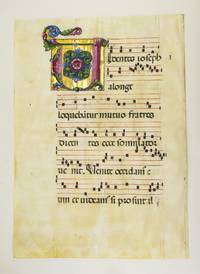 Videntes ioseph
a longe
loquebãtur mutuo fratres
dicen tes ecce somniator
ue nit. Venite occidam
um et uideam si prosint il